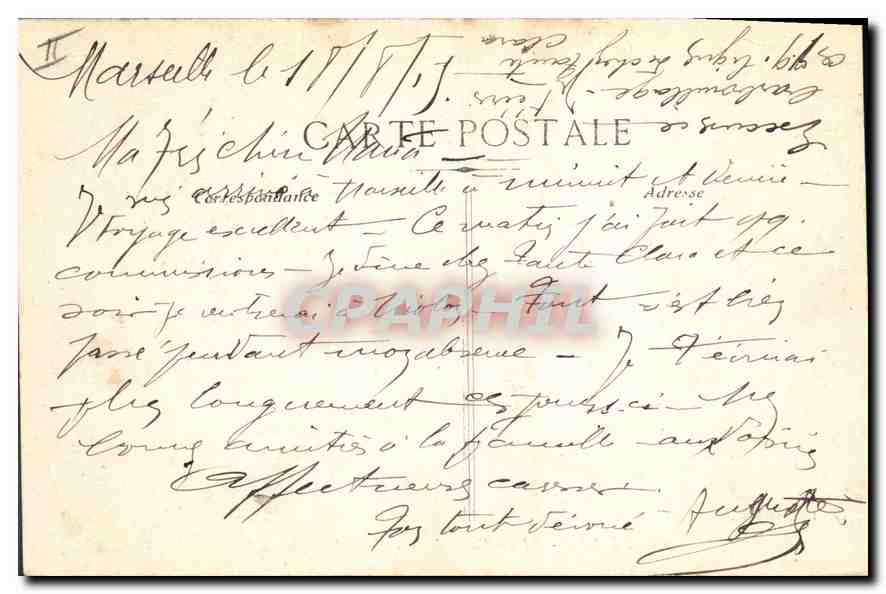 II
Marseille le 18/8/15.
CARTE POSTALE
Ma très chère Maria
Correspondance
Adresse
Je suis arrivé à Marseille à minuit et demie -
Voyage excellent - Ce matin j'ai fait qq.
commissions - Je dîne chez Tante Clara et ce
soir je rentrerai à Tout s'est bien
passé pendant mon absence - Je t'écrirai
plus longuement ces jours-ci - Mes
bonnes amitiés à la famille - aux
affectueuses caresses
Ton tout dévoué - Auguste
Clara
Tante
CPAPHIL